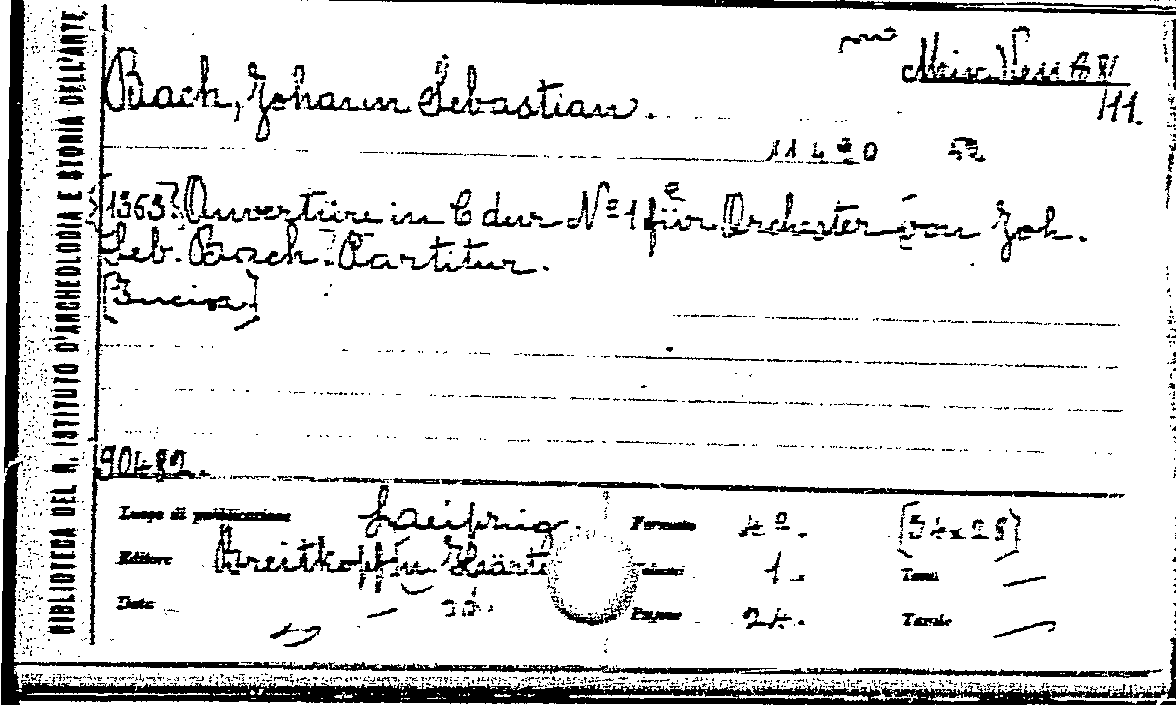 BIBLIOTECA DEL R. ISTITUTO D'ARCHEOLOGIA E STORIA DELL'ARTE
Bach, Johann Sebastian.
[1363] Ouvertüre in C dur Nº 1 für Orchester von Joh.
Seb. Bach. Partitur.
90482.
Luogo di pubblicazione Leipzig.
Formato 4º.
Editore Breitkopf u. Härte
Volumi 1.
Tomi —
Data —
Pagine 24.
Tavole —